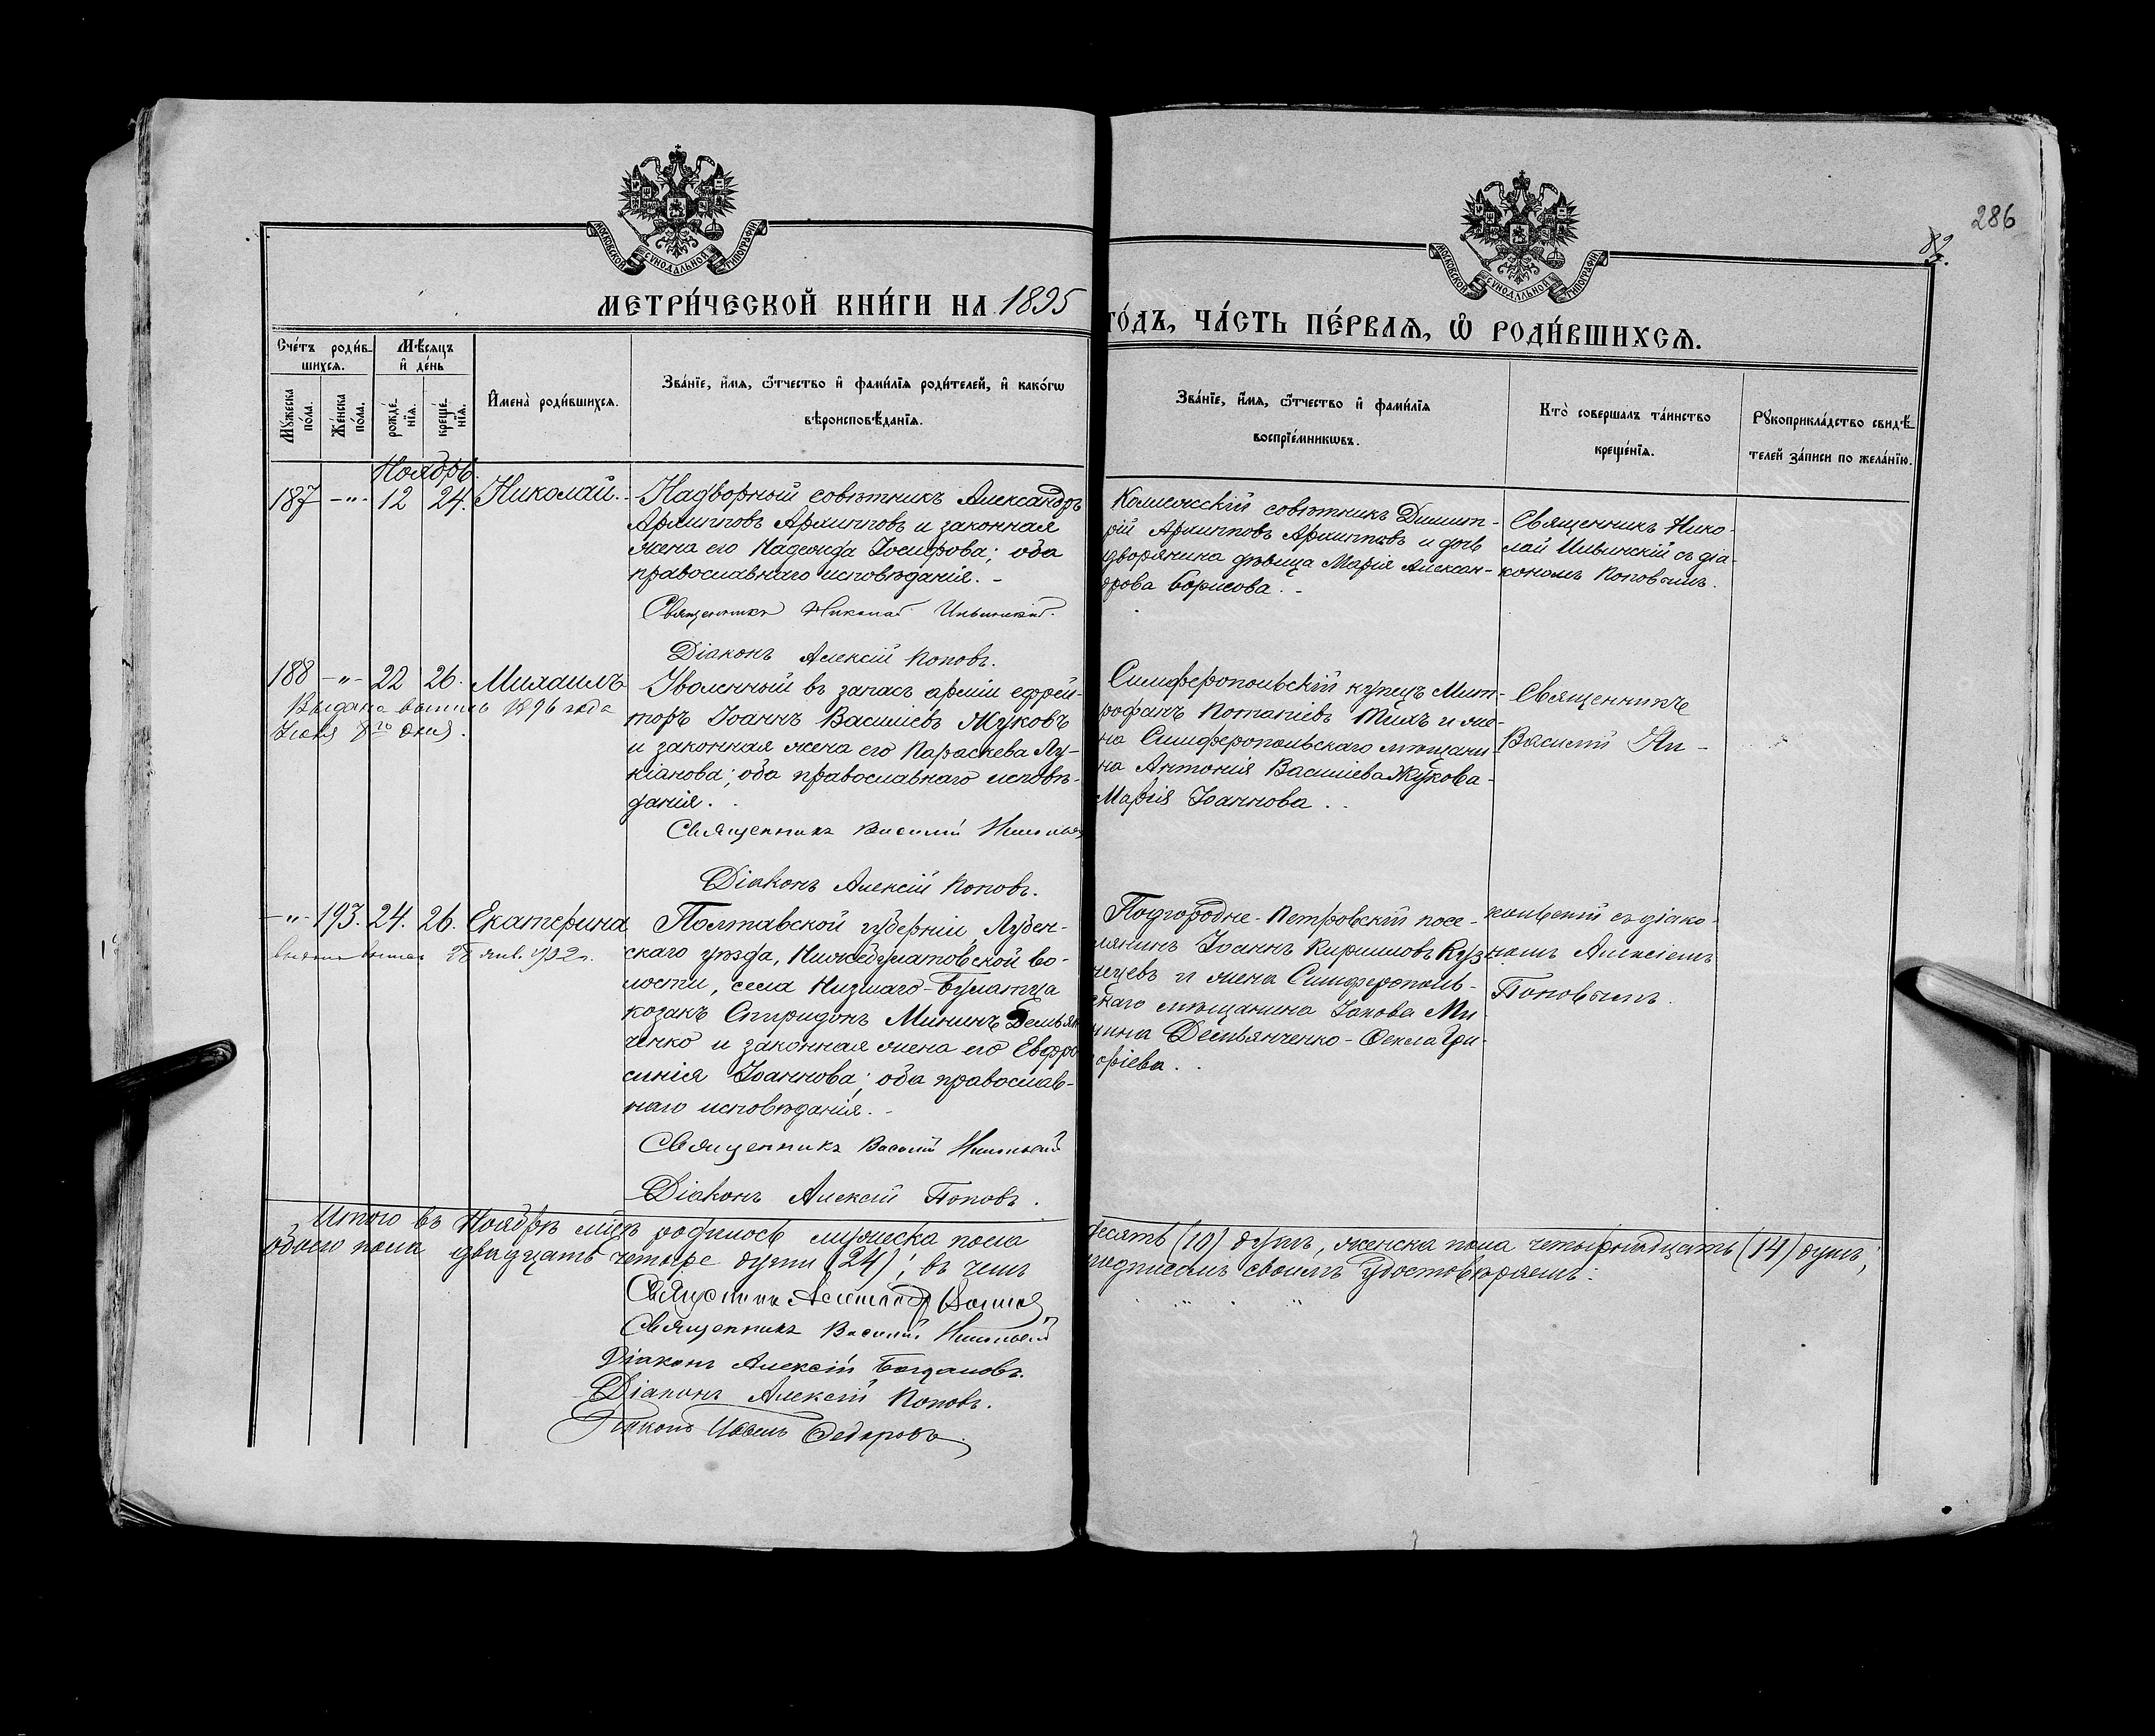 286
82.
МОСКОВСКОЙ СѴНОДАЛЬНОЙ ТИПОГРАФІИ
МОСКОВСКОЙ СѴНОДАЛЬНОЙ ТИПОГРАФІИ
МЕТРИ́ЧЕСКОЙ КНИ́ГИ НА 1895
ГО́ДЪ, ЧА́СТЬ ПЕ́РВАѦ, Ѽ РОДИ́ВШИХСѦ.
Сче́тъ роди́в-
шихсѧ.
Мꙋжеска по́ла.
Же́нска по́ла.
Мѣ́сѧцъ
и҆ де́нь
рожде́-
нїѧ.
креще́-
нїѧ.
И҆мена̀ роди́вшихсѧ.
Зва́нїе, и҆́мѧ, ѻ҆́тчество и҆ фами́лїѧ роди́телей, и҆ како́гѡ
вѣроисповѣ́данїѧ.
Зва́нїе, и҆́мѧ, ѻ҆́тчество и҆ фами́лїѧ
воспрїе́мникѡвъ.
Кто̀ соверша́лъ та́инство
креще́нїѧ.
Рꙋкоприкла́дство свидѣ́-
телей за́писи по жела́нїю.
Ноябрь.
187 -"- 12 24. Николай.
Надворный совѣтникъ Александръ
Архипповъ Архипповъ и законная
жена его Надежда Іосифова; оба
православнаго исповѣданія. -
Священникъ Николай Ильинскій.
Діаконъ Алексій Поповъ.
Коллежскій совѣтникъ Димит-
рій Архипповъ Архипповъ и дочь
дворянина дѣвица Марія Алексан-
дрова Борисова. -
Священникъ Нико-
лай Ильинскій съ діа-
кономъ Поповымъ.
188 -"- 22 26. Михаилъ
Выдана выпись 1896 года
Іюня 8го дня.
Уволенный въ запасъ арміи ефрей-
торъ Іоаннъ Василіевъ Жуковъ
и законная жена его Параскева Лу-
кіанова; оба православнаго исповѣ-
данія.
Священникъ Василій
Діаконъ Алексій Поповъ.
Симферопольскій купецъ Мит-
рофанъ Потапіевъ и же-
на Симферопольскаго мѣщани-
на Антонія Василіева Жукова -
Марія Іоаннова.
Священникъ
Василій Ни-
-"- 193. 24. 26. Екатерина
выдана выпись 28 янв. 1902 г.
Полтавской губерніи Лубен-
скаго уѣзда, Нижебулатовской во-
лости, села Низшаго-Булатца
козакъ Спиридонъ Мининъ Демьян
ченко и законная жена его Евфро
синія Іоаннова; оба православ-
наго исповѣданія. -
Священникъ Василій
Діаконъ Алексій Поповъ.
Подгородне-Петровскій посе-
лянинъ Іоаннъ Кирилловъ Куз
нецевъ и жена Симферополь-
скаго мѣщанина Іакова Ми
нина Демьянченко - Ѳекла Гри-
горіева.
кольскій съ діако-
номъ Алексіемъ
Поповымъ.
Итого въ Ноябрѣ мцѣ родилось мужеска пола
десять (10) душъ, женска пола четырнадцать (14) душъ,
обоего пола двадцать четыре души (24); въ чемъ
подписомъ своимъ удостовѣряемъ:
Священникъ
Священникъ Василій
Діаконъ Алексій Богдановъ.
Діаконъ Алексій Поповъ.
Діаконъ Павелъ Ѳедоровъ.